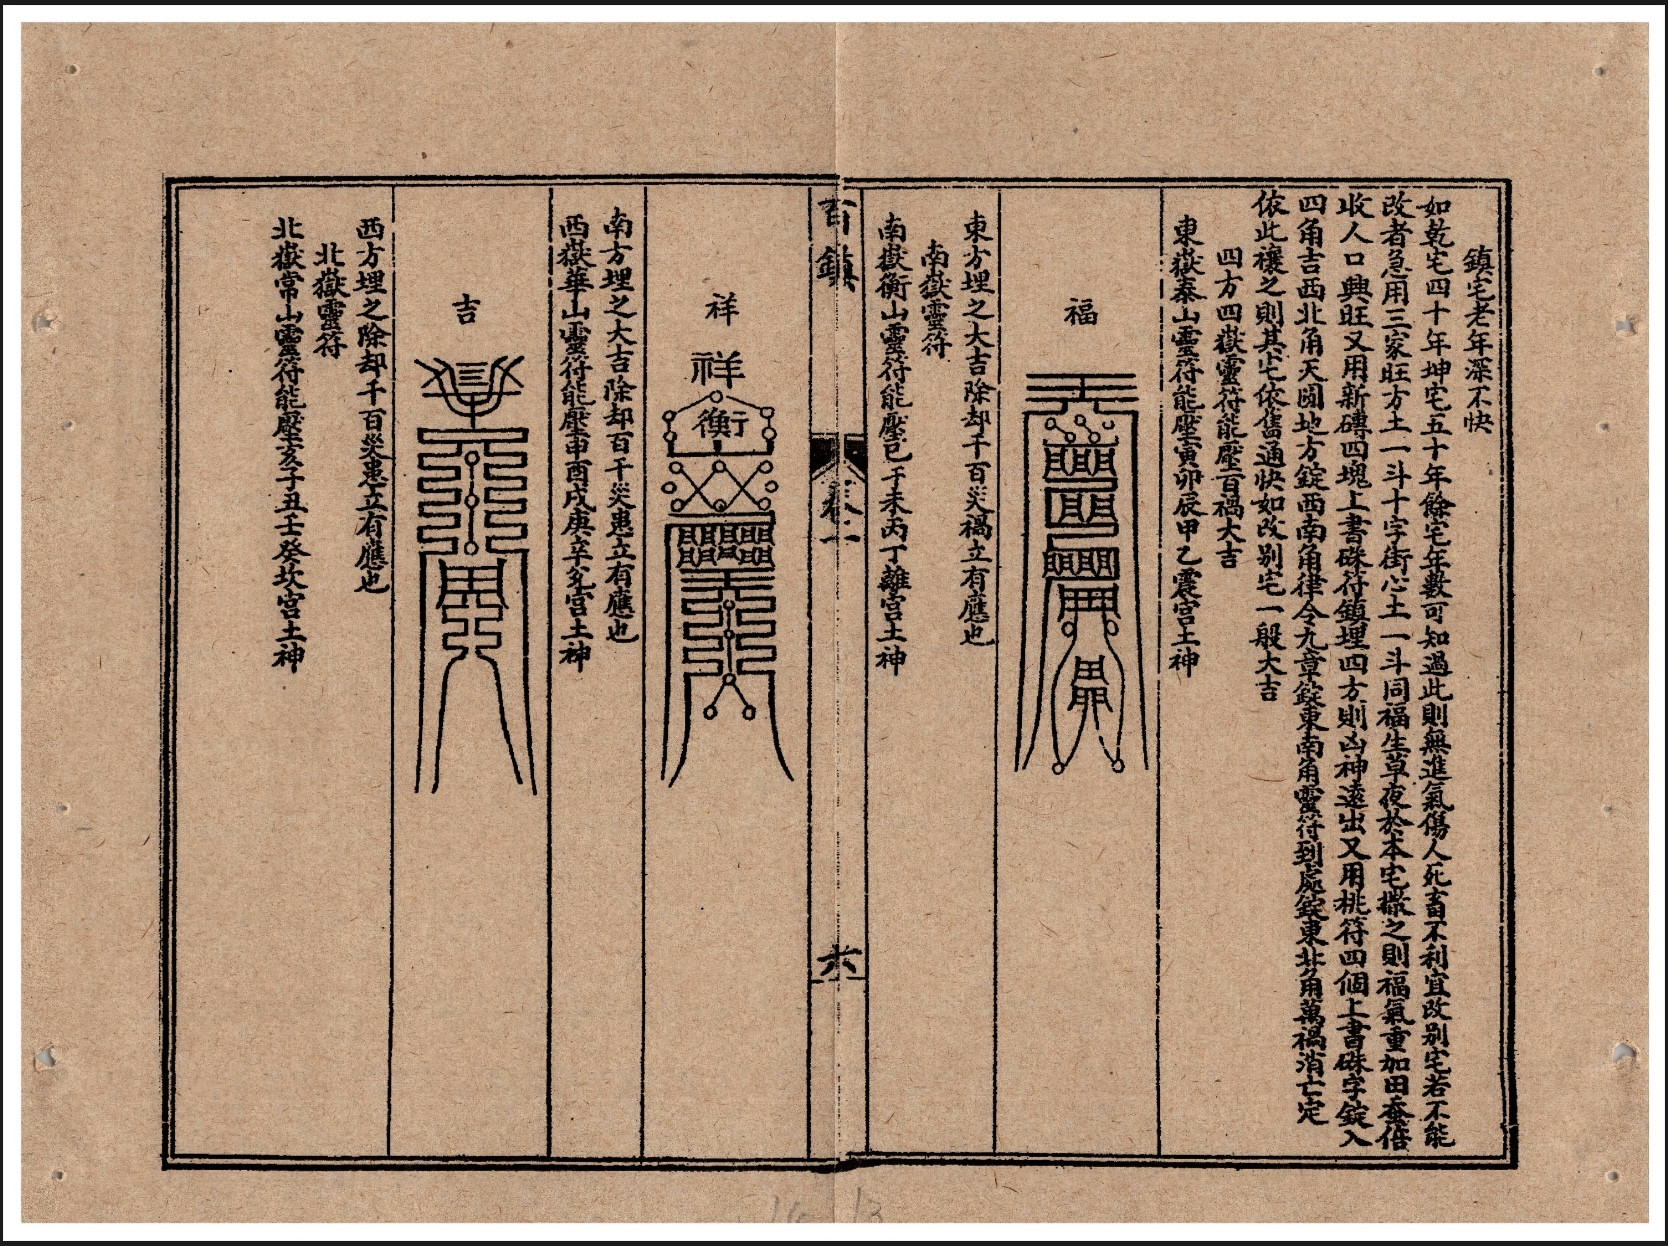 鎮宅老年深不快
如乾宅四十年坤宅五十年餘宅年數可知過此則無進氣傷人死畜不利宜改别宅若不能
改者急用三家旺方土一斗十字街心土一斗同福生草夜於本宅撒之則福氣重加田蚕倍
收人口興旺又用新磚四塊上書硃符鎮埋四方則凶神遠出又用桃符四個上書硃字錠入
四角吉西北角天圓地方錠西南角律令九章錠東南角靈符到處錠東北角萬禍消亡定
依此禳之則其宅依舊通快如改别宅一般大吉
四方四嶽靈符能壓百禍大吉
東嶽泰山靈符能壓寅卯辰甲乙震宮土神
福
東方埋之大吉除却千百災禍立有應也
南嶽靈符
南嶽衡山靈符能壓巳午未丙丁離宮土神
百鎮
卷二
六
祥
祥
衡
南方埋之大吉除却百千災患立有應也
西嶽華山靈符能壓申酉戌庚辛兌宮土神
吉
西方埋之除却千百災患立有應也
北嶽靈符
北嶽常山靈符能壓亥子丑壬癸坎宮土神